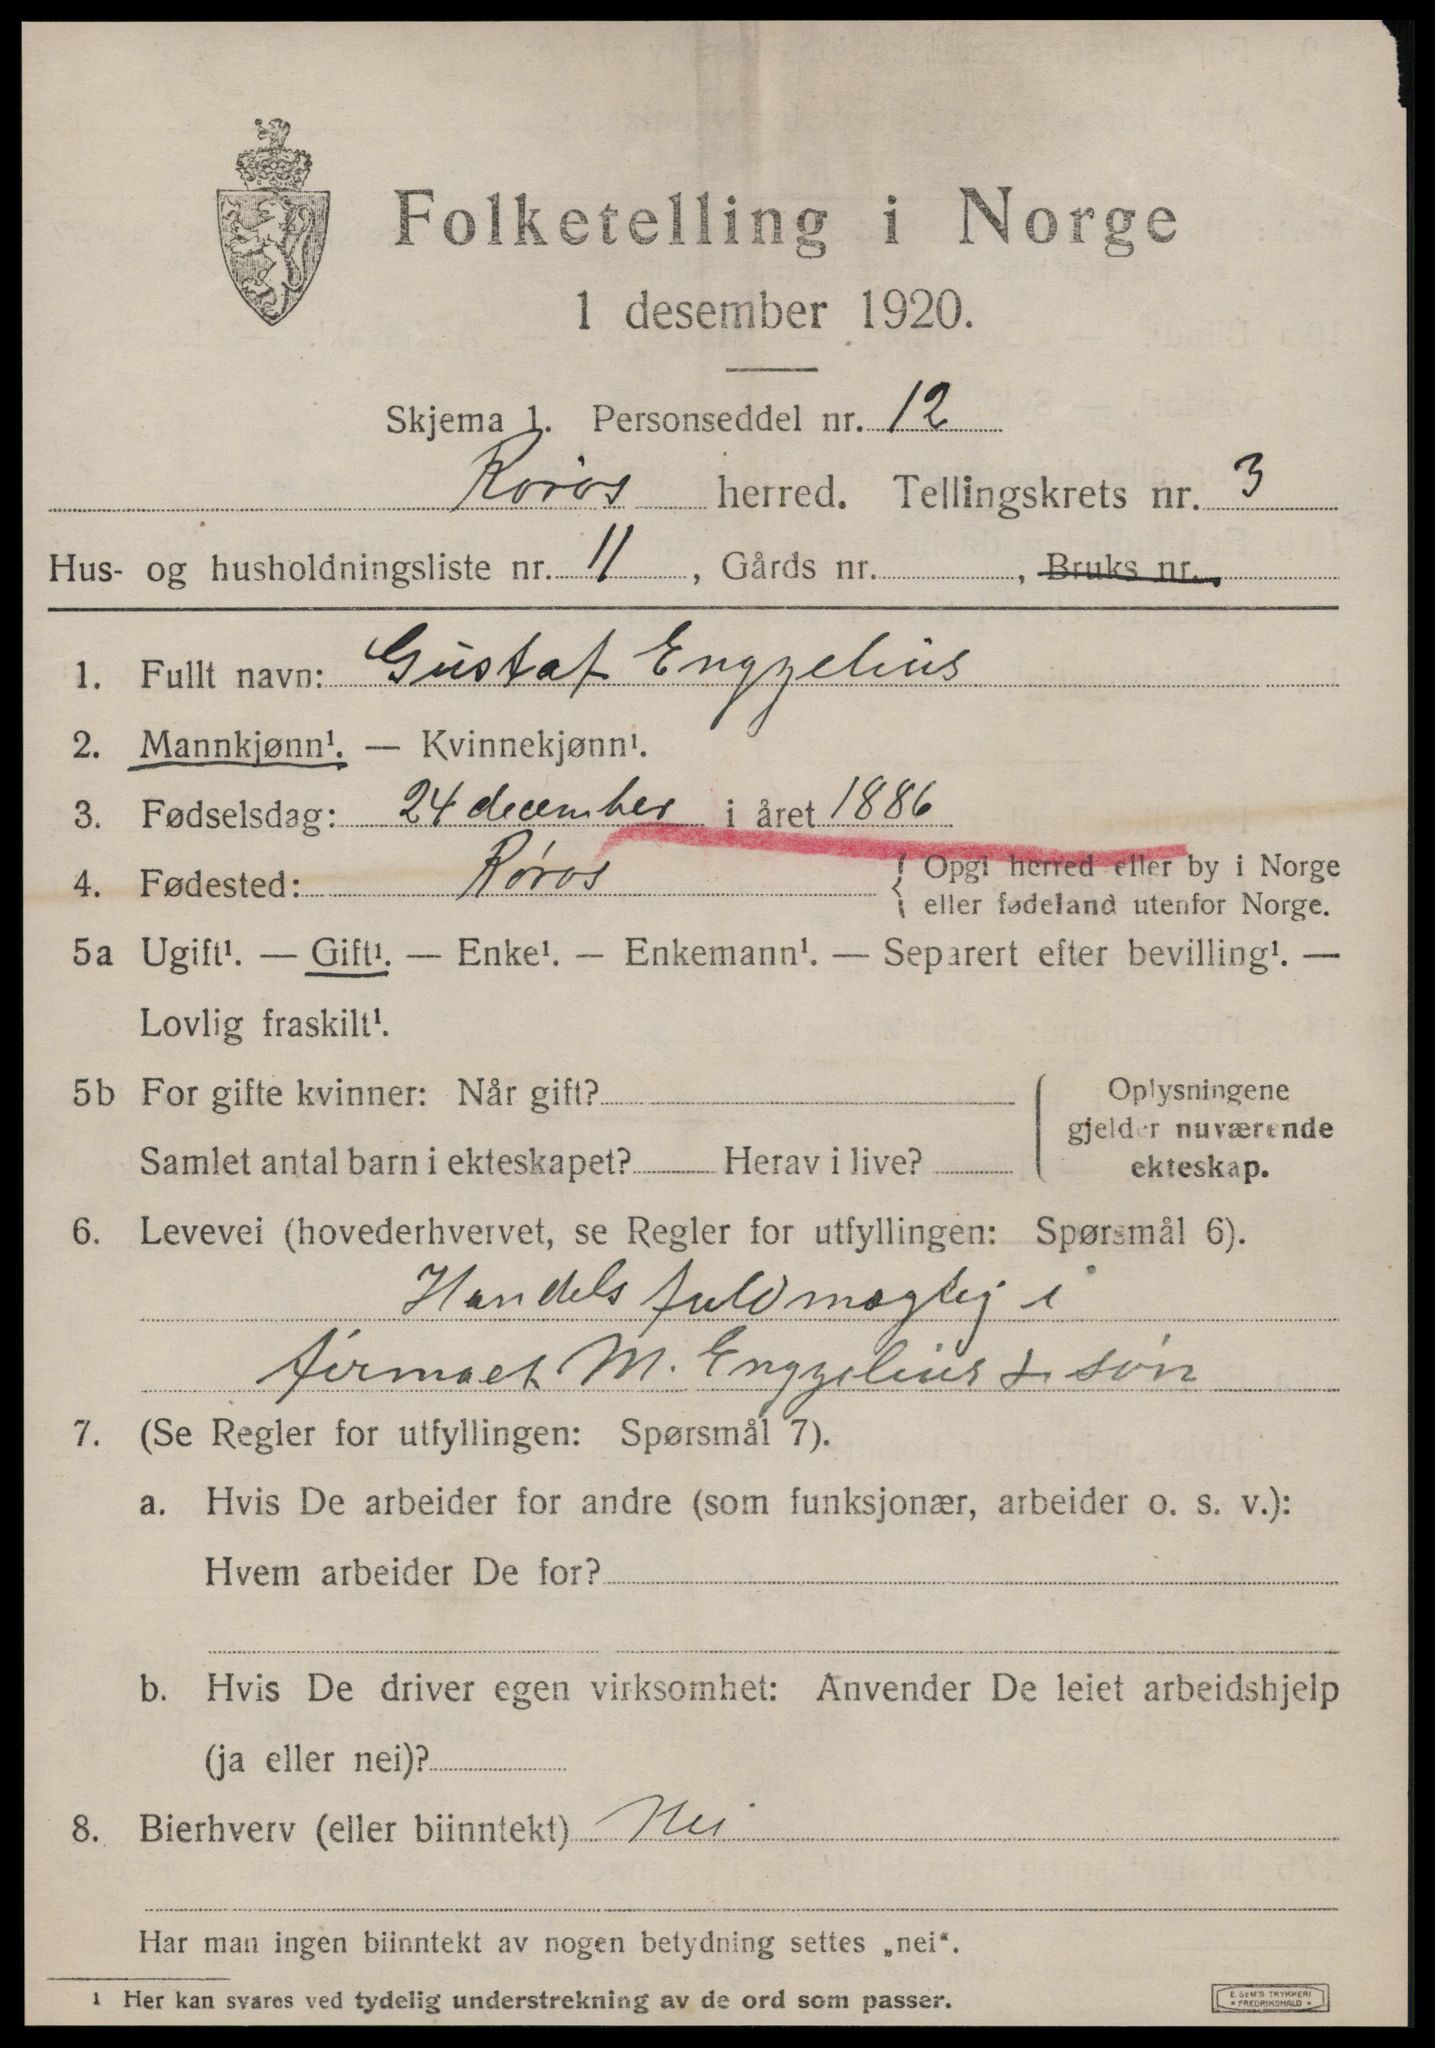 Folketelling i Norge
1 desember 1920.
Skjema 1. Personseddel nr. 12
Røros herred. Tellingskrets nr. 3
Hus- og husholdningsliste nr. 11, Gårds nr. , Bruks nr.
1. Fullt navn: Gustaf Engzelius
2. Mannkjønn¹. — Kvinnekjønn¹.
3. Fødselsdag: 24 december i året 1886
4. Fødested: Røros { Opgi herred eller by i Norge
eller fødeland utenfor Norge.
5a Ugift¹. — Gift¹. — Enke¹. — Enkemann¹. — Separert efter bevilling¹. —
Lovlig fraskilt¹.
5b For gifte kvinner: Når gift?
Samlet antal barn i ekteskapet? Herav i live?
Oplysningene
gjelder nuværende
ekteskap.
6. Levevei (hovederhvervet, se Regler for utfyllingen: Spørsmål 6).
Handelsfuldmægtig i
firmaet M. Engzelius & søn
7. (Se Regler for utfyllingen: Spørsmål 7).
a. Hvis De arbeider for andre (som funksjonær, arbeider o. s. v.):
Hvem arbeider De for?
b. Hvis De driver egen virksomhet: Anvender De leiet arbeidshjelp
(ja eller nei)?
8. Bierhverv (eller biinntekt) Nei
Har man ingen biinntekt av nogen betydning settes „nei“.
¹ Her kan svares ved tydelig understrekning av de ord som passer.
E. SEM'S TRYKKERI
* FREDRIKSHALD *